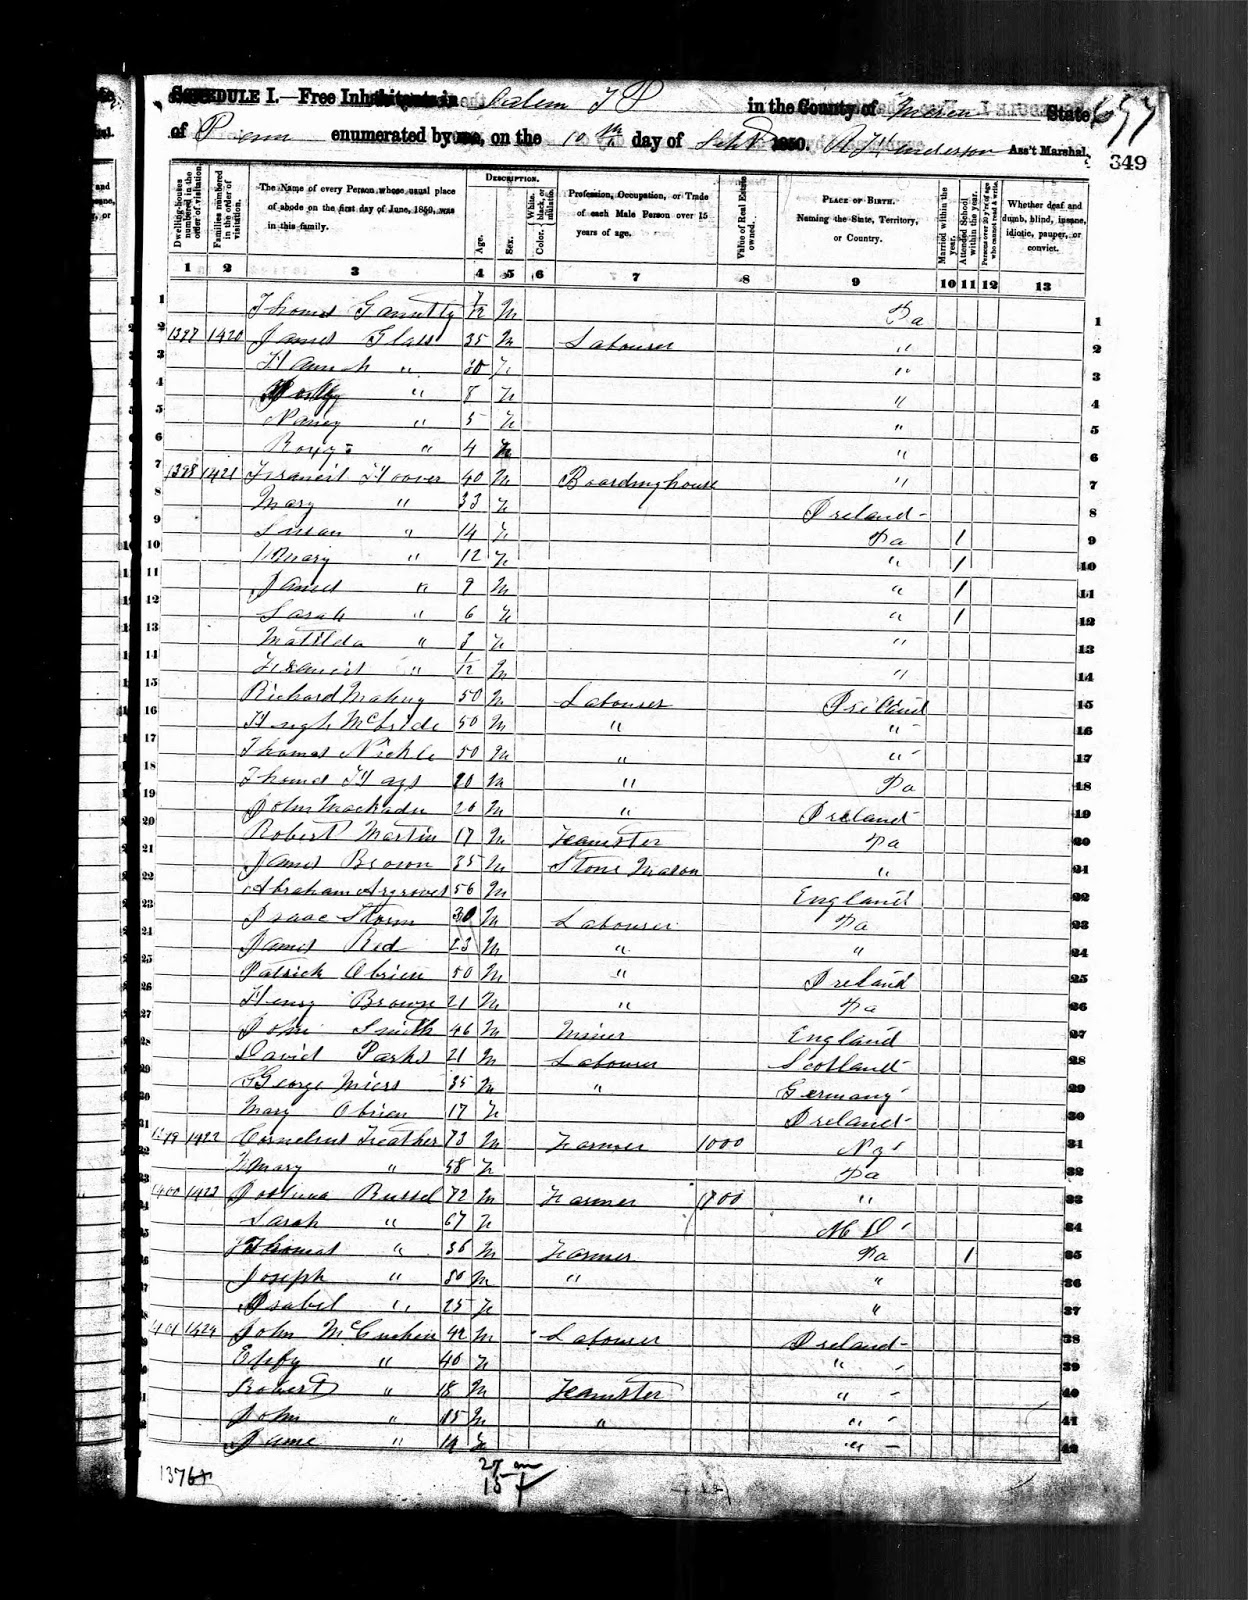 SCHEDULE I.—Free Inhabitants in Salem T P in the County of Mercer State 697
of Penn enumerated by me, on the 10th day of Sept 1850. Anderson Ass't Marshal.
349
Dwelling-houses numbered in the order of visitation.
Families numbered in the order of visitation.
The Name of every Person whose usual place of abode on the first day of June, 1850, was in this family.
DESCRIPTION.
Age.
Sex.
Color, White, black, or mulatto.
Profession, Occupation, or Trade of each Male Person over 15 years of age.
Value of Real Estate owned.
PLACE OF BIRTH. Naming the State, Territory, or Country.
Married within the year.
Attended School within the year.
Persons over 20 y'rs of age who cannot read & write.
Whether deaf and dumb, blind, insane, idiotic, pauper, or convict.
1 2 3 4 5 6 7 8 9 10 11 12 13
1 Thomas 7/12 M Pa 1
2 1397 1420 James Glass 35 M Labourer " 2
3 Hannah " 30 F " 3
4 " 8 F " 4
5 Nancy " 5 F " 5
6 " 4 " 6
7 1398 1421 Francis Hoover 40 M Boardinghouse " 7
8 Mary " 33 F Ireland 8
9 Susan " 14 F Pa 1 9
10 Mary " 12 F " 1 10
11 James " 9 M " 1 11
12 Sarah " 6 F " 1 12
13 Matilda " 3 F " 13
14 Francis " 1/12 M " 14
15 Richard 50 M Labourer Ireland 15
16 Hugh McBride 50 M " " 16
17 Thomas Nickle 50 M " " 17
18 Thomas Hays 20 M " Pa 18
19 John 26 M " Ireland 19
20 Robert Martin 17 M Teamster Pa 20
21 James Brown 35 M Stone Mason " 21
22 Abraham 56 M England 22
23 Isaac Storm 30 M Labourer Pa 23
24 James Red 23 M " " 24
25 Patrick Obrien 50 M " Ireland 25
26 Henry Brown 21 M " Pa 26
27 John Smith 46 M Miner England 27
28 David Parks 21 M Labourer Scotland 28
29 George Miers 35 M " Germany 29
30 Mary Obrien 17 F Ireland 30
31 1399 1422 Cornelius Feather 73 M Farmer 1000 31
32 Mary " 58 F Pa 32
33 1400 1423 Joshua Russel 72 M Farmer 1700 " 33
34 Sarah " 67 F M D 34
35 Thomas " 36 M Farmer Pa 1 35
36 Joseph " 30 M " " 36
37 Isabel " 25 F " 37
38 1401 1424 John 42 M Labourer Ireland 38
39 Effy " 40 F " 39
40 Robert " 18 M Teamster " 40
41 John " 15 M " " 41
42 Jane " 14 F " 42
1376
27 m
15 f